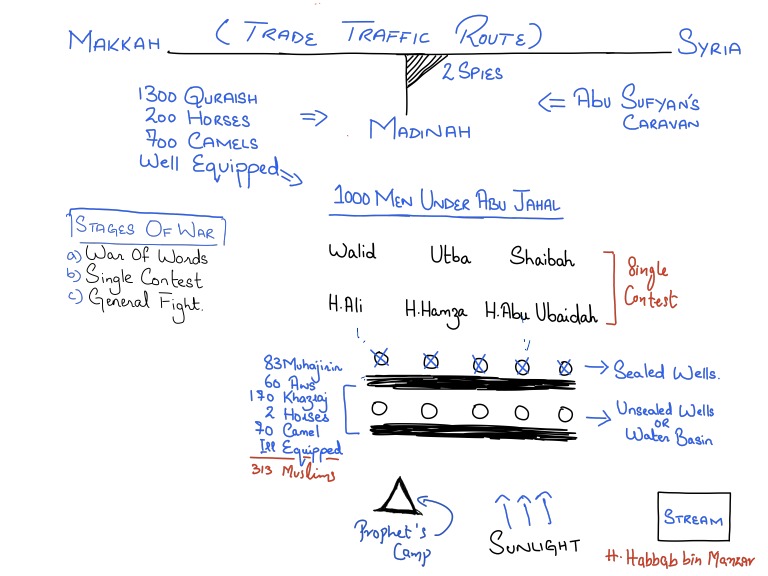 ( TRADE TRAFFIC ROUTE )
MAKKAH
SYRIA
2 SPIES
MADINAH
1300 QURAISH
200 HORSES
700 CAMELS
Well Equipped
ABU SUFYAN'S
CARAVAN
1000 MEN UNDER ABU JAHAL
STAGES OF WAR
a) War Of Words
b) Single Contest
c) General Fight.
Walid Utba Shaibah
H.Ali H.Hamza H.Abu Ubaidah
Single
Contest
83 Muhajirin
60 Aws
170 Khazraj
2 Horses
70 Camel
Ill Equipped
313 Muslims
Sealed Wells.
Unsealed Wells
OR
Water Basin
Prophet's
Camp
SUNLIGHT
STREAM
H. Habbab bin Manzar